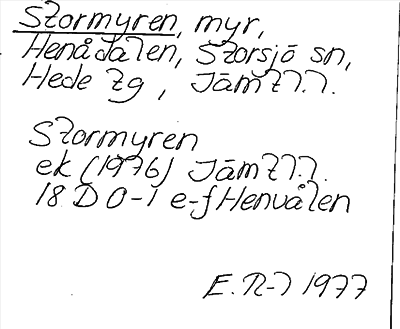 Stormyren, myr,
Henådalen, Storsjö sn,
Hede tg, Jämtl.
Stormyren
ek (1976) Jämtl.
18 D 0-1 e-f Henvålen
E. N-l 1977